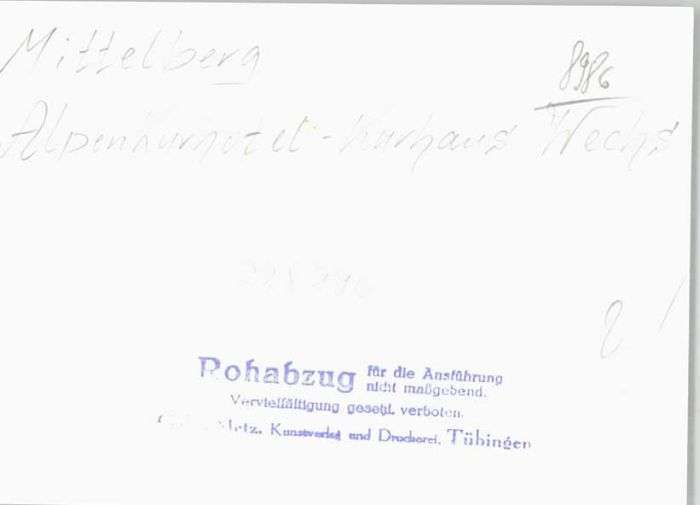 Mittelberg
8986
Alpenkurhotel - Kurhaus Wechs
Rohabzug für die Ausführung
nicht maßgebend.
Vervielfältigung gesetzl. verboten.
Metz, Kunstverlag und Druckerei, Tübingen